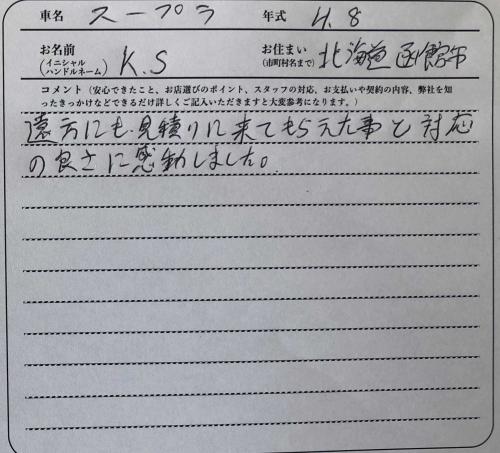 車名 スープラ 年式 H.8
お名前 (イニシャル ハンドルネーム) K.S お住まい (市町村名まで) 北海道函館市
コメント(安心できたこと、お店選びのポイント、スタッフの対応、お支払いや契約の内容、弊社を知
ったきっかけなどできるだけ詳しくご記入いただきますと大変参考になります。)
遠方にも見積りに来てもらえた事と対応
の良さに感動しました。